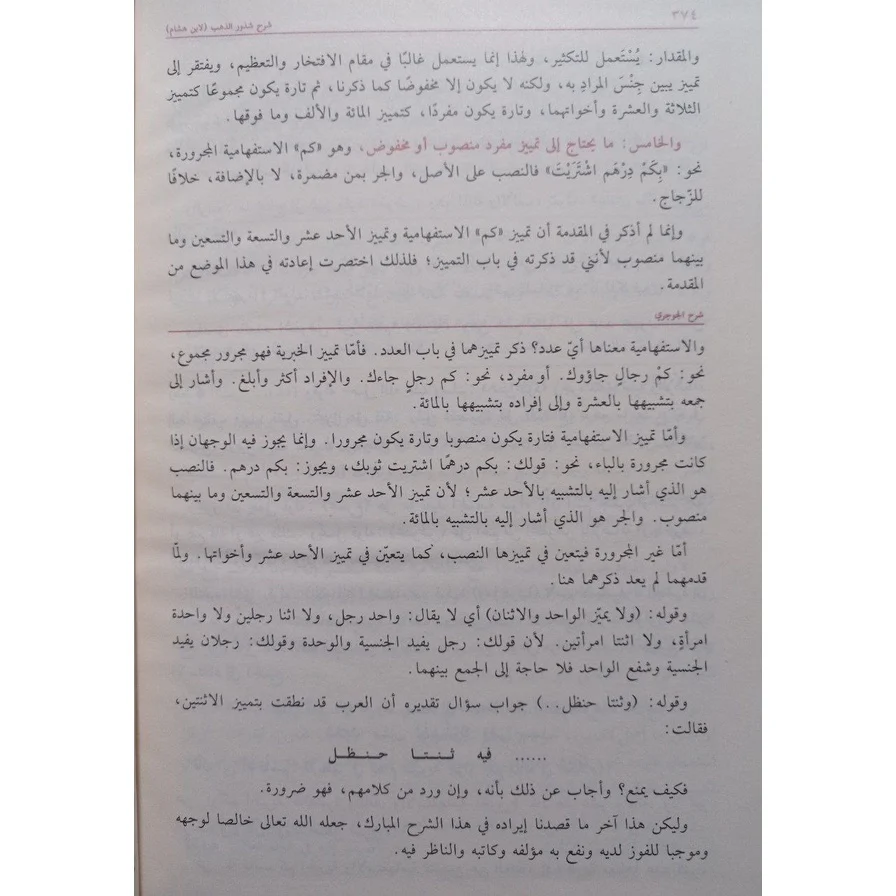 ٣٧٤
شرح شذور الذهب (لابن هشام)
والمقدار: يُسْتَعمل للتكثير، ولهذا إنما يستعمل غالبًا في مقام الافتخار والتعظيم، ويفتقر إلى
تمييز يبين جِنْسَ المرادِ به، ولكنه لا يكون إلا مخفوضًا كما ذكرنا، ثم تارة يكون مجموعًا كتمييز
الثلاثة والعشرة وأخواتهما، وتارة يكون مفردًا، كتمييز المائة والألف وما فوقها.
والخامس: ما يحتاج إلى تمييز مفرد منصوب أو مخفوض، وهو «كم» الاستفهامية المجرورة،
نحو: «بِكَمْ دِرْهَم اشْتَرَيْتَ» فالنصب على الأصل، والجر بمن مضمرة، لا بالإضافة، خلافًا
للزّجاج.
وإنما لم أذكر في المقدمة أن تمييز «كم» الاستفهامية وتمييز الأحد عشر والتسعة والتسعين وما
بينهما منصوب لأنني قد ذكرته في باب التمييز؛ فلذلك اختصرت إعادته في هذا الموضع من
المقدمة.
شرح الجوجري
والاستفهامية معناها أيّ عدد؟ ذكر تمييزهما في باب العدد. فأمّا تمييز الخبرية فهو مجرور مجموع،
نحو: كمْ رجالٍ جاؤوك. أو مفرد، نحو: كم رجلٍ جاءك. والإفراد أكثر وأبلغ. وأشار إلى
جمعه بتشبيهها بالعشرة وإلى إفراده بتشبيهها بالمائة.
وأمّا تمييز الاستفهامية فتارة يكون منصوبا وتارة يكون مجرورا. وإنما يجوز فيه الوجهان إذا
كانت مجرورة بالباء، نحو: قولك: بكم درهمًا اشتريت ثوبك، ويجوز: بكم درهم. فالنصب
هو الذي أشار إليه بالتشبيه بالأحد عشر؛ لأن تمييز الأحد عشر والتسعة والتسعين وما بينهما
منصوب. والجر هو الذي أشار إليه بالتشبيه بالمائة.
أمّا غير المجرورة فيتعين في تمييزها النصب، كما يتعيّن في تمييز الأحد عشر وأخواتها. ولمّا
قدمهما لم يعد ذكرهما هنا.
وقوله: (ولا يميّز الواحد والاثنان) أي لا يقال: واحد رجل، ولا اثنا رجلين ولا واحدة
امرأةٍ، ولا اثنتا امرأتين. لأن قولك: رجل يفيد الجنسية والوحدة وقولك: رجلان يفيد
الجنسية وشفع الواحد فلا حاجة إلى الجمع بينهما.
وقوله: (وثنتا حنظل..) جواب سؤال تقديره أن العرب قد نطقت بتمييز الاثنتين،
فقالت:
...... فيه ثـنـتـا حـنـظـل
فكيف يمنع؟ وأجاب عن ذلك بأنه، وإن ورد من كلامهم، فهو ضرورة.
وليكن هذا آخر ما قصدنا إيراده في هذا الشرح المبارك، جعله الله تعالى خالصا لوجهه
وموجبا للفوز لديه ونفع به مؤلفه وكاتبه والناظر فيه.